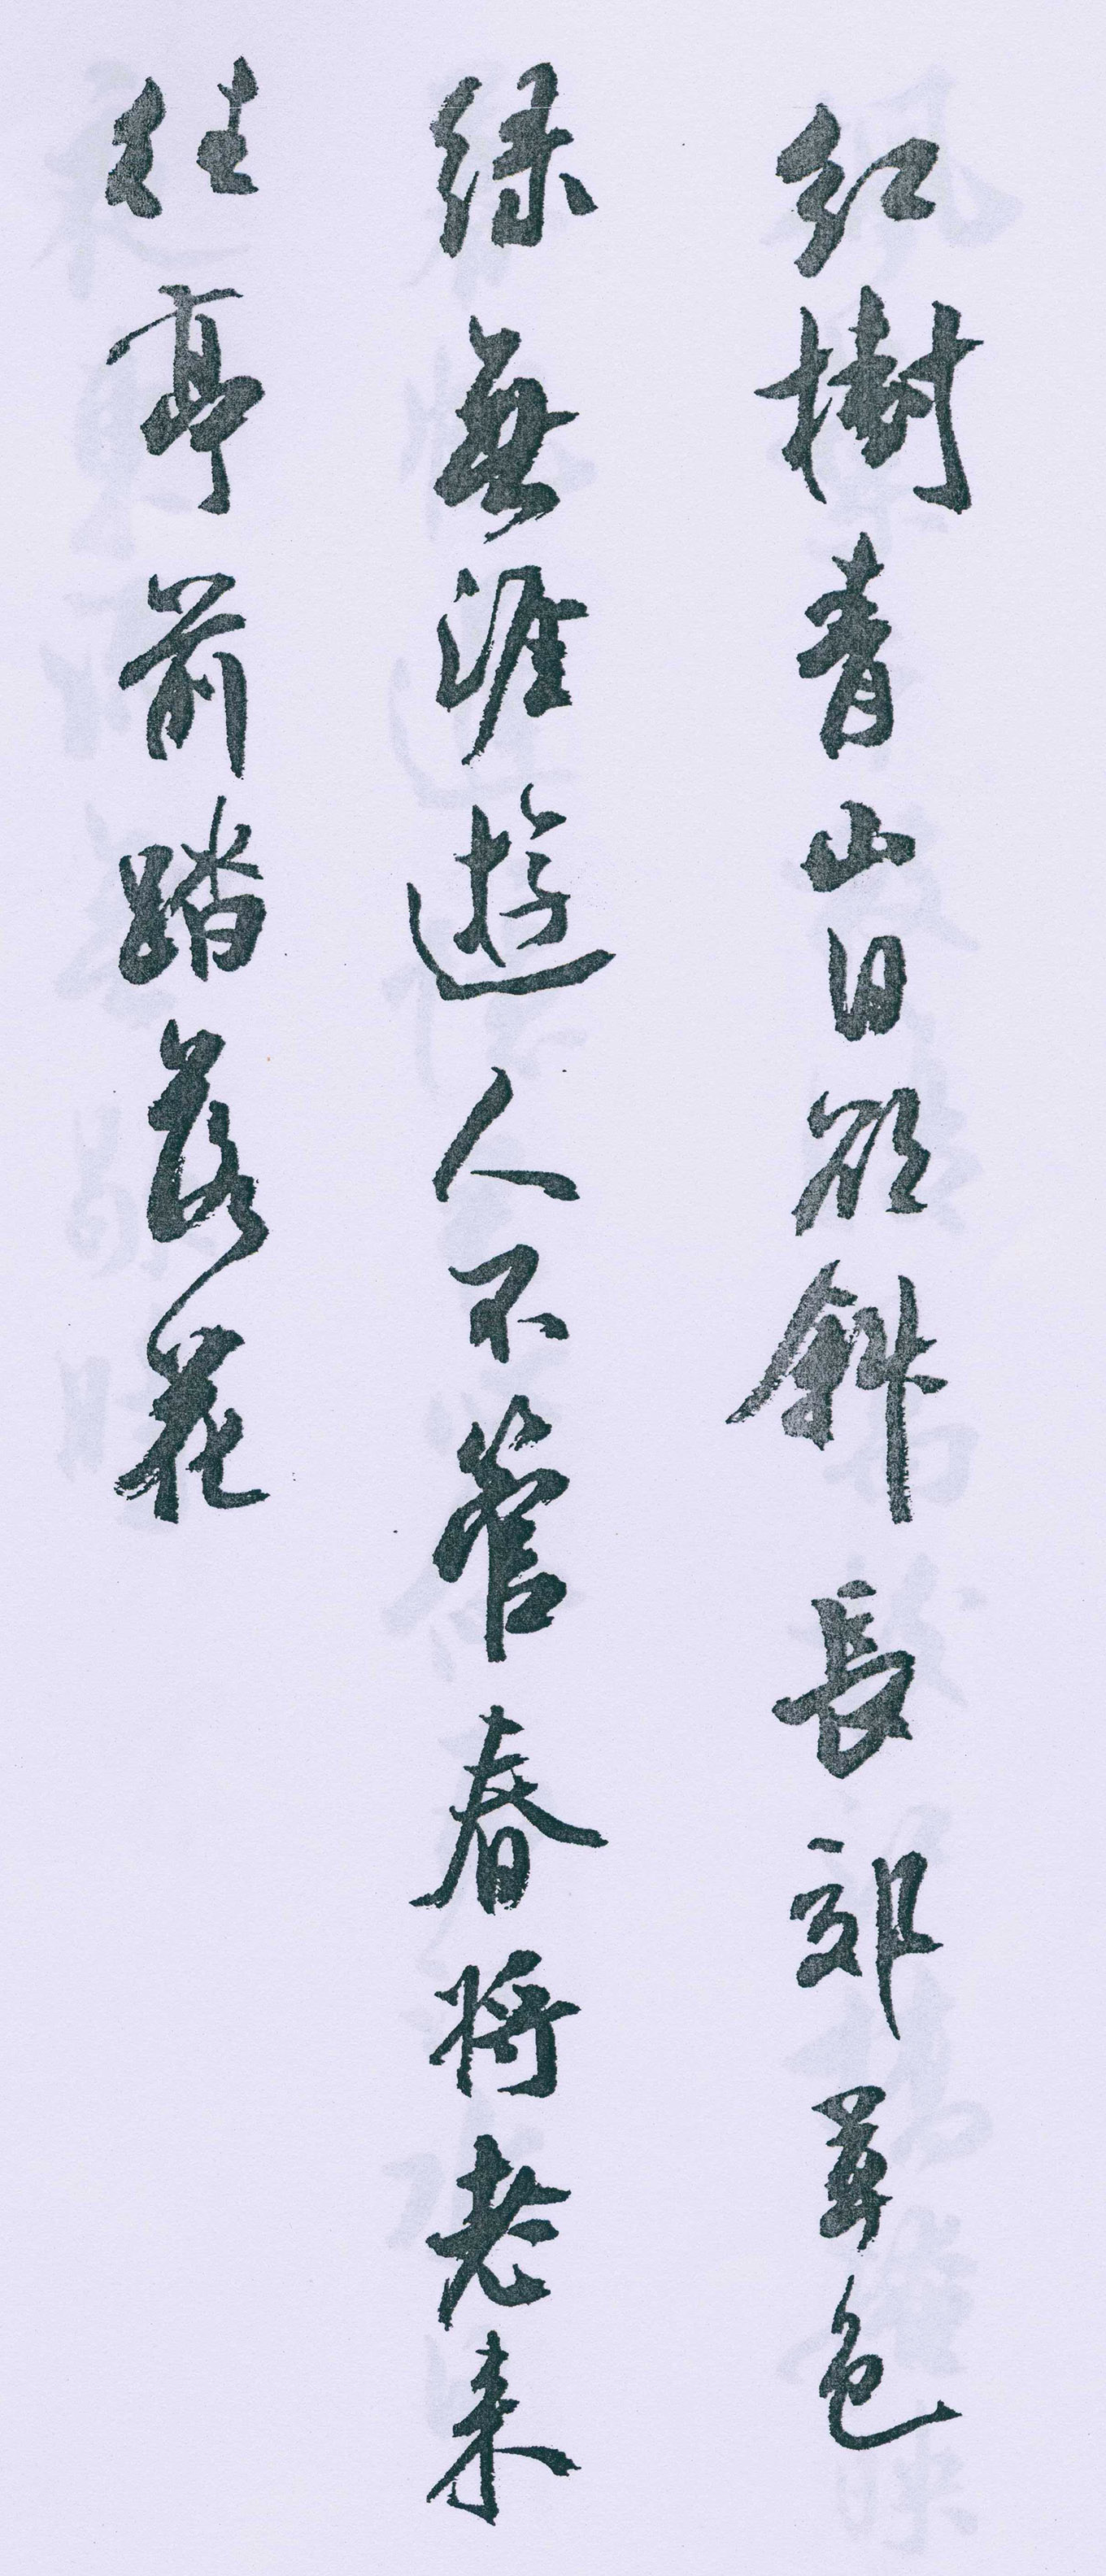 紅樹青山日欲斜長郊草色
綠無涯遊人不管春將老来
往亭前踏落花